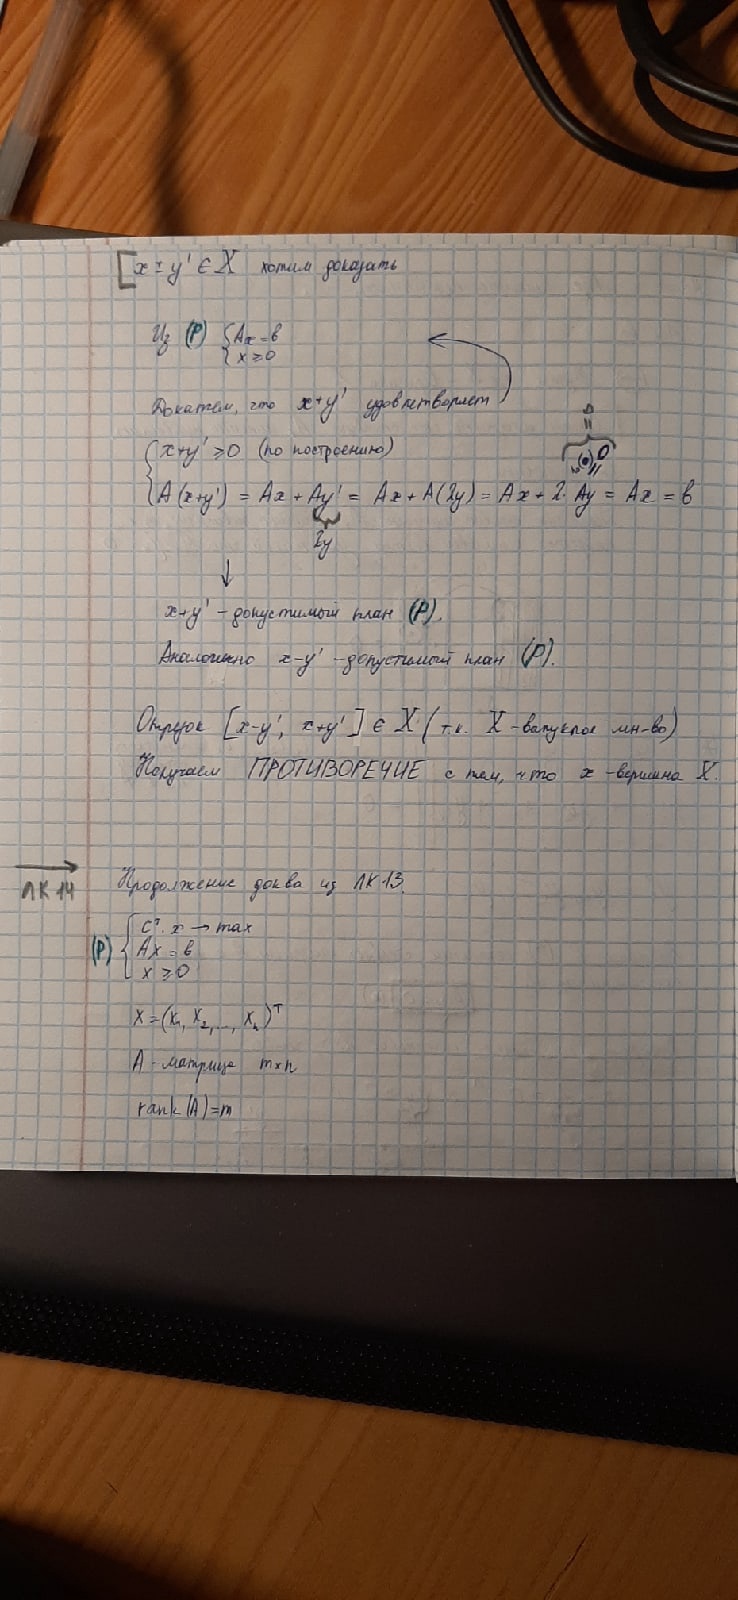 [x ± y' ∈ X хотим доказать
Из (P) { Ax = b
x ≥ 0
Докажем, что x+y' удовлетворяет
{ x+y' ≥ 0 (по построению)
A(x+y') = Ax + Ay' = Ax + A(2y) = Ax + 2· Ay = Ax = b
2y
↓
x+y' – допустимый план (P).
Аналогично x–y' – допустимый план (P).
Отрезок [x–y', x+y'] ∈ X (т.к. X – выпуклое мн-во)
Получаем ПРОТИВОРЕЧИЕ с тем, что x – вершина X.
ЛК 14
Продолжение док-ва из ЛК 13.
(P) { Cᵀ· x → max
Ax = b
x ≥ 0
X = (x₁, x₂, ..., xₙ)ᵀ
A – матрица m×n
rank(A) = m